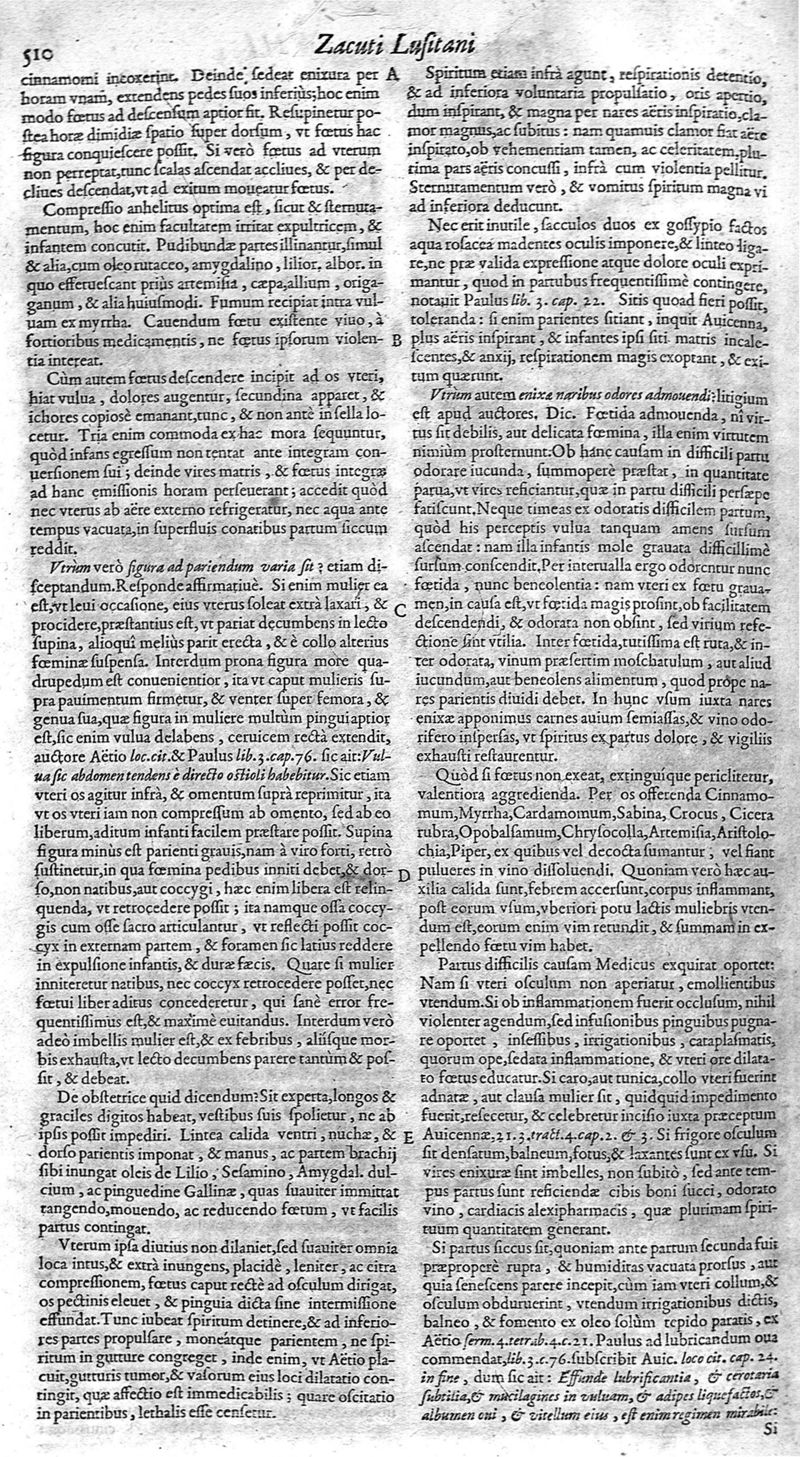 510
Zacuti Lusitani
cinnamomi incoxerint. Deinde sedeat enixura per
horam vnam, extendens pedes suos inferiùs; hoc enim
modo fœtus ad descensum aptior fit. Resupinetur po-
stea horæ dimidiæ spatio super dorsum, vt fœtus hac
figura conquiescere possit. Si verò fœtus ad vterum
non perreptat, tunc scalas ascendat accliues, & per de-
cliues descendat, vt ad exitum moueatur fœtus.
Compressio anhelitus optima est, sicut & sternuta-
mentum, hoc enim facultatem irritat expultricem, &
infantem concutit. Pudibundæ partes illinantur, simul
& alia, cum oleo rutaceo, amygdalino, lilior. albor. in
quo efferuescant priùs artemisia, cæpa, allium, origa-
ganum, & alia huiusmodi. Fumum recipiat intra vul-
uam ex myrrha. Cauendum fœtu existente viuo, à
fortioribus medicamentis, ne fœtus ipsorum violen-
tia intereat.
Cùm autem fœtus descendere incipit ad os vteri,
hiat vulua, dolores augentur, secundina apparet, &
ichores copiosè emanant, tunc, & non antè in sella lo-
cetur. Tria enim commoda ex hac mora sequuntur,
quòd infans egressum non tentat ante integram con-
uersionem sui; deinde vires matris, & fœtus integræ
ad hanc emissionis horam perseuerant; accedit quòd
nec vterus ab aëre externo refrigeratur, nec aqua ante
tempus vacuata, in superfluis conatibus partum siccum
reddit.
Vtrum verò figura ad pariendum varia sit? etiam di-
sceptandum. Responde affirmatiuè. Si enim mulier ea
est, vt leui occasione, eius vterus soleat extrà laxari, &
procidere, præstantius est, vt pariat decumbens in lecto
supina, alioquì meliùs parit erecta, & è collo alterius
fœminæ suspensa. Interdum prona figura more qua-
drupedum est conuenientior, ita vt caput mulieris su-
pra pauimentum firmetur, & venter super femora, &
genua sua, quæ figura in muliere multùm pingui aptior
est, sic enim vulua delabens, ceruicem rectà extendit,
auctore Aëtio loc. cit. & Paulus lib. 3. cap. 76. sic ait: Vul-
ua sic abdomen tendens è directo ostioli habebitur. Sic etiam
vteri os agitur infrà, & omentum suprà reprimitur, ita
vt os vteri iam non compressum ab omento, sed ab eo
liberum, aditum infanti facilem præstare possit. Supina
figura minùs est parienti grauis, nam à viro forti, retrò
sustinetur, in qua fœmina pedibus inniti debet, & dor-
so, non natibus, aut coccygi, hæc enim libera est relin-
quenda, vt retrocedere possit; ita namque ossa coccy-
gis cum osse sacro articulantur, vt reflecti possit coc-
cyx in externam partem, & foramen sic latius reddere
in expulsione infantis, & duræ fæcis. Quare si mulier
inniteretur natibus, nec coccyx retrocedere posset, nec
fœtui liber aditus concederetur, qui sanè error fre-
quentissimus est, & maximè euitandus. Interdum verò
adeò imbellis mulier est, & ex febribus, aliisque mor-
bis exhausta, vt lecto decumbens parere tantùm & pos-
sit, & debeat.
De obstetrice quid dicendum? Sit experta, longos &
graciles digitos habeat, vestibus suis spolietur, ne ab
ipsis possit impediri. Lintea calida ventri, nuchæ, &
dorso parientis imponat, & manus, ac partem brachij
sibi inungat oleis de Lilio, Sesamino, Amygdal. dul-
cium, ac pinguedine Gallinæ, quas suauiter immittat
tangendo, mouendo, ac reducendo fœtum, vt facilis
partus contingat.
Vterum ipsa diutius non dilaniet, sed suauiter omnia
loca intus, & extrà inungens, placidè, leniter, ac citra
compressionem, fœtus caput rectè ad osculum dirigat,
os pectinis eleuet, & pinguia dicta sine intermissione
effundat. Tunc iubeat spiritum detinere, & ad inferio-
res partes propulsare, moneatque parientem, ne spi-
ritum in gutture congreget, inde enim, vt Aëtio pla-
cuit, gutturis tumor, & vasorum eius loci dilatatio con-
tingit, quæ affectio est immedicabilis; quare oscitatio
in parientibus, lethalis esse censetur.
A
B
C
D
E
Spiritum etiam infrà agunt, respirationis detentio,
& ad inferiora voluntaria propulsatio, oris apertio,
dum inspirant, & magna per nares aëris inspiratio, cla-
mor magnus, ac subitus: nam quamuis clamor fiat aëre
inspirato, ob vehementiam tamen, ac celeritatem, plu-
tima pars aëris concussi, infrà cum violentia pellitur.
Sternutamentum verò, & vomitus spiritum magna vi
ad inferiora deducunt.
Nec erit inutile, sacculos duos ex gossypio factos
aqua rosacea madentes oculis imponere, & linteo liga-
re, ne præ valida expressione atque dolore oculi expri-
mantur, quod in partubus frequentissimè contingere,
notauit Paulus lib. 3. cap. 22. Sitis quoad fieri possit,
toleranda: si enim parientes sitiant, inquit Auicenna,
plus aëris inspirant, & infantes ipsi siti matris incale-
scentes, & anxij, respirationem magis exoptant, & exi-
tum quærunt.
Vtrum autem enixæ naribus odores admouendi? litigium
est apud auctores. Dic. Fœtida admouenda, ni vir-
tus sit debilis, aut delicata fœmina, illa enim virtutem
nimiùm prosternunt. Ob hanc causam in difficili partu
odorare iucunda, summoperè præstat, in quantitate
parua, vt vires reficiantur, quæ in partu difficili persæpe
fatiscunt. Neque timeas ex odoratis difficilem partum,
quòd his perceptis vulua tanquam amens sursum
ascendat: nam illa infantis mole grauata difficillimè
sursum conscendit. Per interualla ergo odorentur nunc
fœtida, nunc beneolentia: nam vteri ex fœtu graua-
men, in causa est, vt fœtida magis prosint, ob facilitatem
descendendi, & odorata non obsint, sed virium refe-
ctione sint vtilia. Inter fœtida, tutissima est ruta, & in-
ter odorata, vinum præsertim moschatulum, aut aliud
iucundum, aut beneolens alimentum, quod prope na-
res parientis diuidi debet. In hunc vsum iuxta nares
enixæ apponimus carnes auium semiassas, & vino odo-
rifero inspersas, vt spiritus ex partus dolore, & vigiliis
exhausti restaurentur.
Quòd si fœtus non exeat, extinguique periclitetur,
valentiora aggredienda. Per os offerenda Cinnamo-
mum, Myrrha, Cardamomum, Sabina, Crocus, Cicera
rubra, Opobalsamum, Chrysocolla, Artemisia, Aristolo-
chia, Piper, ex quibus vel decocta sumantur, vel fiant
pulueres in vino dissoluendi. Quoniam verò hæc au-
xilia calida sunt, febrem accersunt, corpus inflammant,
post eorum vsum, vberiori potu lactis muliebris vten-
dum est, eorum enim vim retundit, & summam in ex-
pellendo fœtu vim habet.
Partus difficilis causam Medicus exquirat oportet:
Nam si vteri osculum non aperiatur, emollientibus
vtendum. Si ob inflammationem fuerit occlusum, nihil
violenter agendum, sed infusionibus pinguibus pugna-
re oportet, insessibus, irrigationibus, cataplasmatis,
quorum ope, sedata inflammatione, & vteri ore dilata-
to fœtus educatur. Si caro, aut tunica, collo vteri fuerint
adnatæ, aut clausa mulier sit, quidquid impedimento
fuerit, resecetur, & celebretur incisio iuxta præceptum
Auicennæ, 21. 3. tract. 4. cap. 2. & 3. Si frigore osculum
sit densatum, balneum, fotus, & laxantes sunt ex vsu. Si
vires enixuræ sint imbelles, non subitò, sed ante tem-
pus partus sunt reficiendæ cibis boni succi, odorato
vino, cardiacis alexipharmacis, quæ plurimam spiri-
tuum quantitatem generant.
Si partus siccus sit, quoniam ante partum secunda fuit
præproperè rupta, & humiditas vacuata prorsus, aut
quia senescens parere incepit, cùm iam vteri collum, &
osculum obduruerint, vtendum irrigationibus dictis,
balneo, & fomento ex oleo solùm tepido paratis, ex
Aëtio serm. 4. tetrab. 4. c. 21. Paulus ad lubricandum oua
commendat, lib. 3. c. 76. subscribit Auic. loco cit. cap. 24.
in fine, dum sic ait: Effunde lubrificantia, & cerotaria
subtilia, & mucilagines in vuluam, & adipes liquefactos, &
albumen oui, & vitellum eius, est enim regimen mirabile.
Si